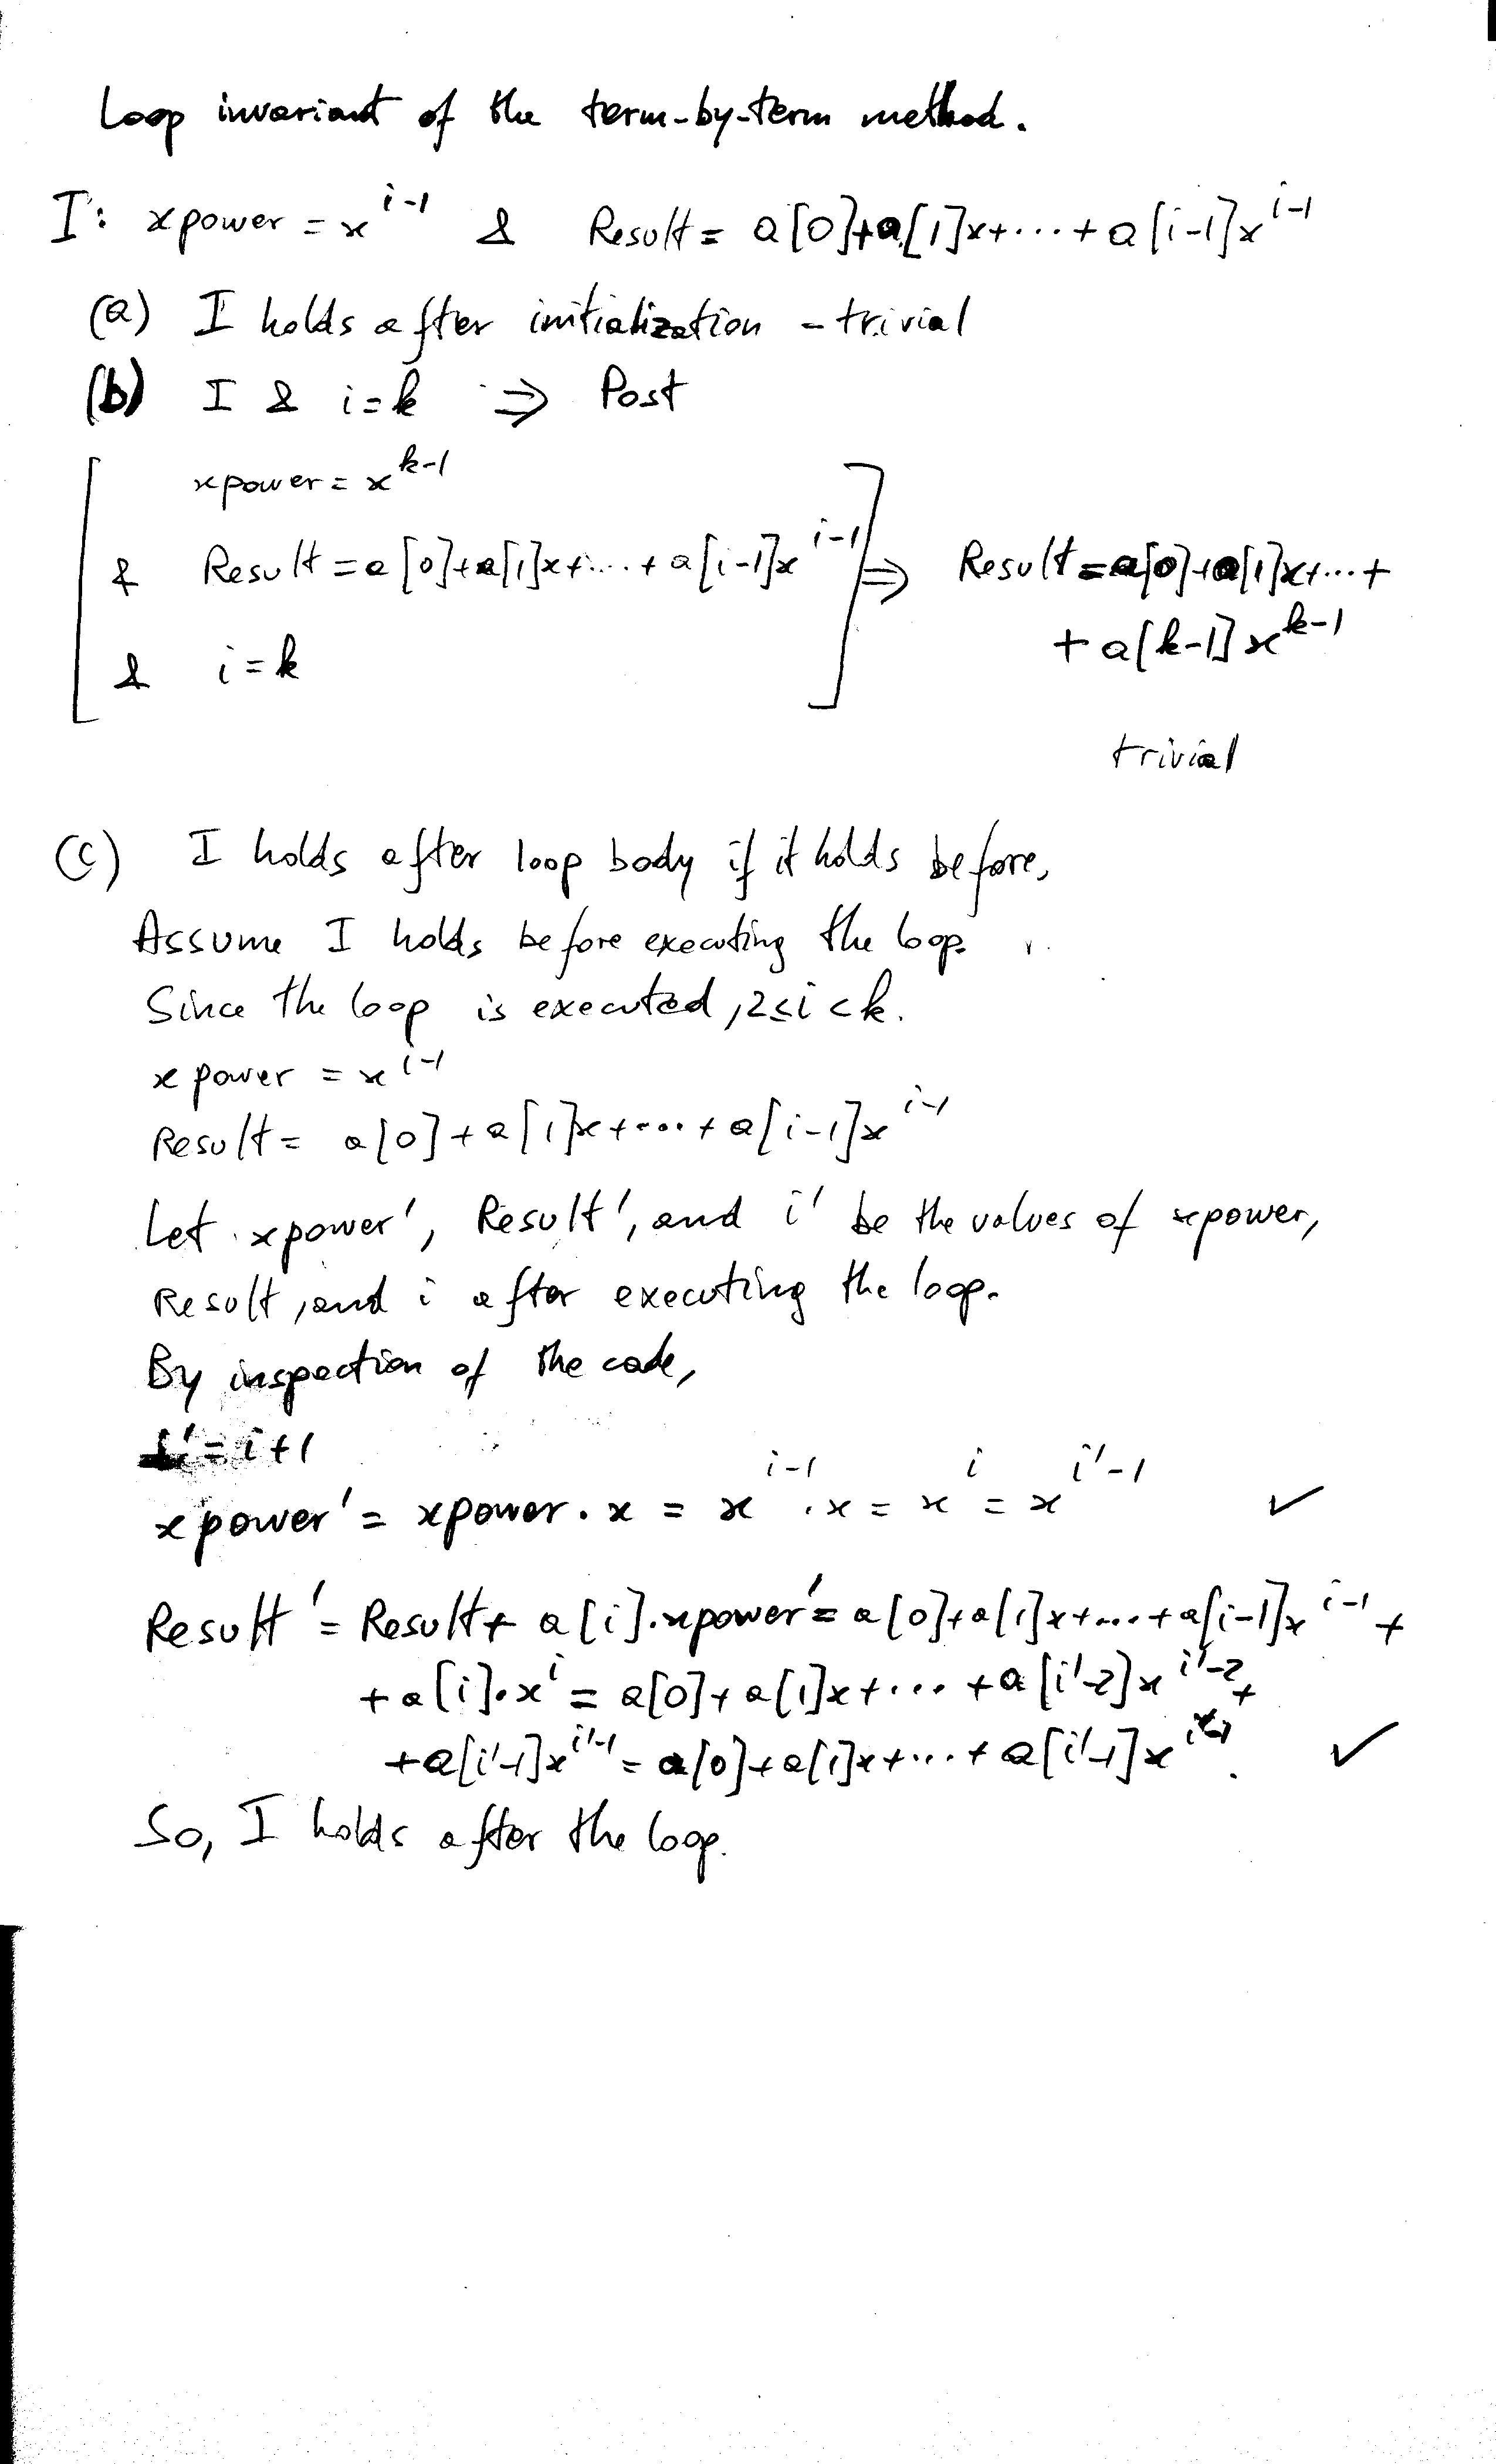 Loop invariant of the term-by-term method.
I: xpower = x^{i-1} & Result = a[0]+a[1]x+...+a[i-1]x^{i-1}
(a) I holds after initialization - trivial
(b) I & i=k ⇒ Post
xpower = x^{k-1}
& Result = a[0]+a[1]x+...+a[i-1]x^{i-1} ⇒ Result = a[0]+a[1]x+...+
+ a[k-1]x^{k-1}
& i=k
trivial
(c) I holds after loop body if it holds before,
Assume I holds before executing the loop.
Since the loop is executed, 2≤i<k.
xpower = x^{i-1}
Result = a[0]+a[1]x+...+a[i-1]x^{i-1}
Let xpower', Result', and i' be the values of xpower,
Result, and i after executing the loop.
By inspection of the code,
i' = i+1
xpower' = xpower · x = x^{i-1} · x = x^{i} = x^{i'-1} ✓
Result' = Result + a[i].xpower' = a[0]+a[1]x+...+a[i-1]x^{i-1} +
+a[i]·x^{i} = a[0]+a[1]x+... +a[i'-2]x^{i'-2}+
+a[i'-1]x^{i'-1} = a[0]+a[1]x+...+a[i'-1]x^{i'-1}. ✓
So, I holds after the loop.